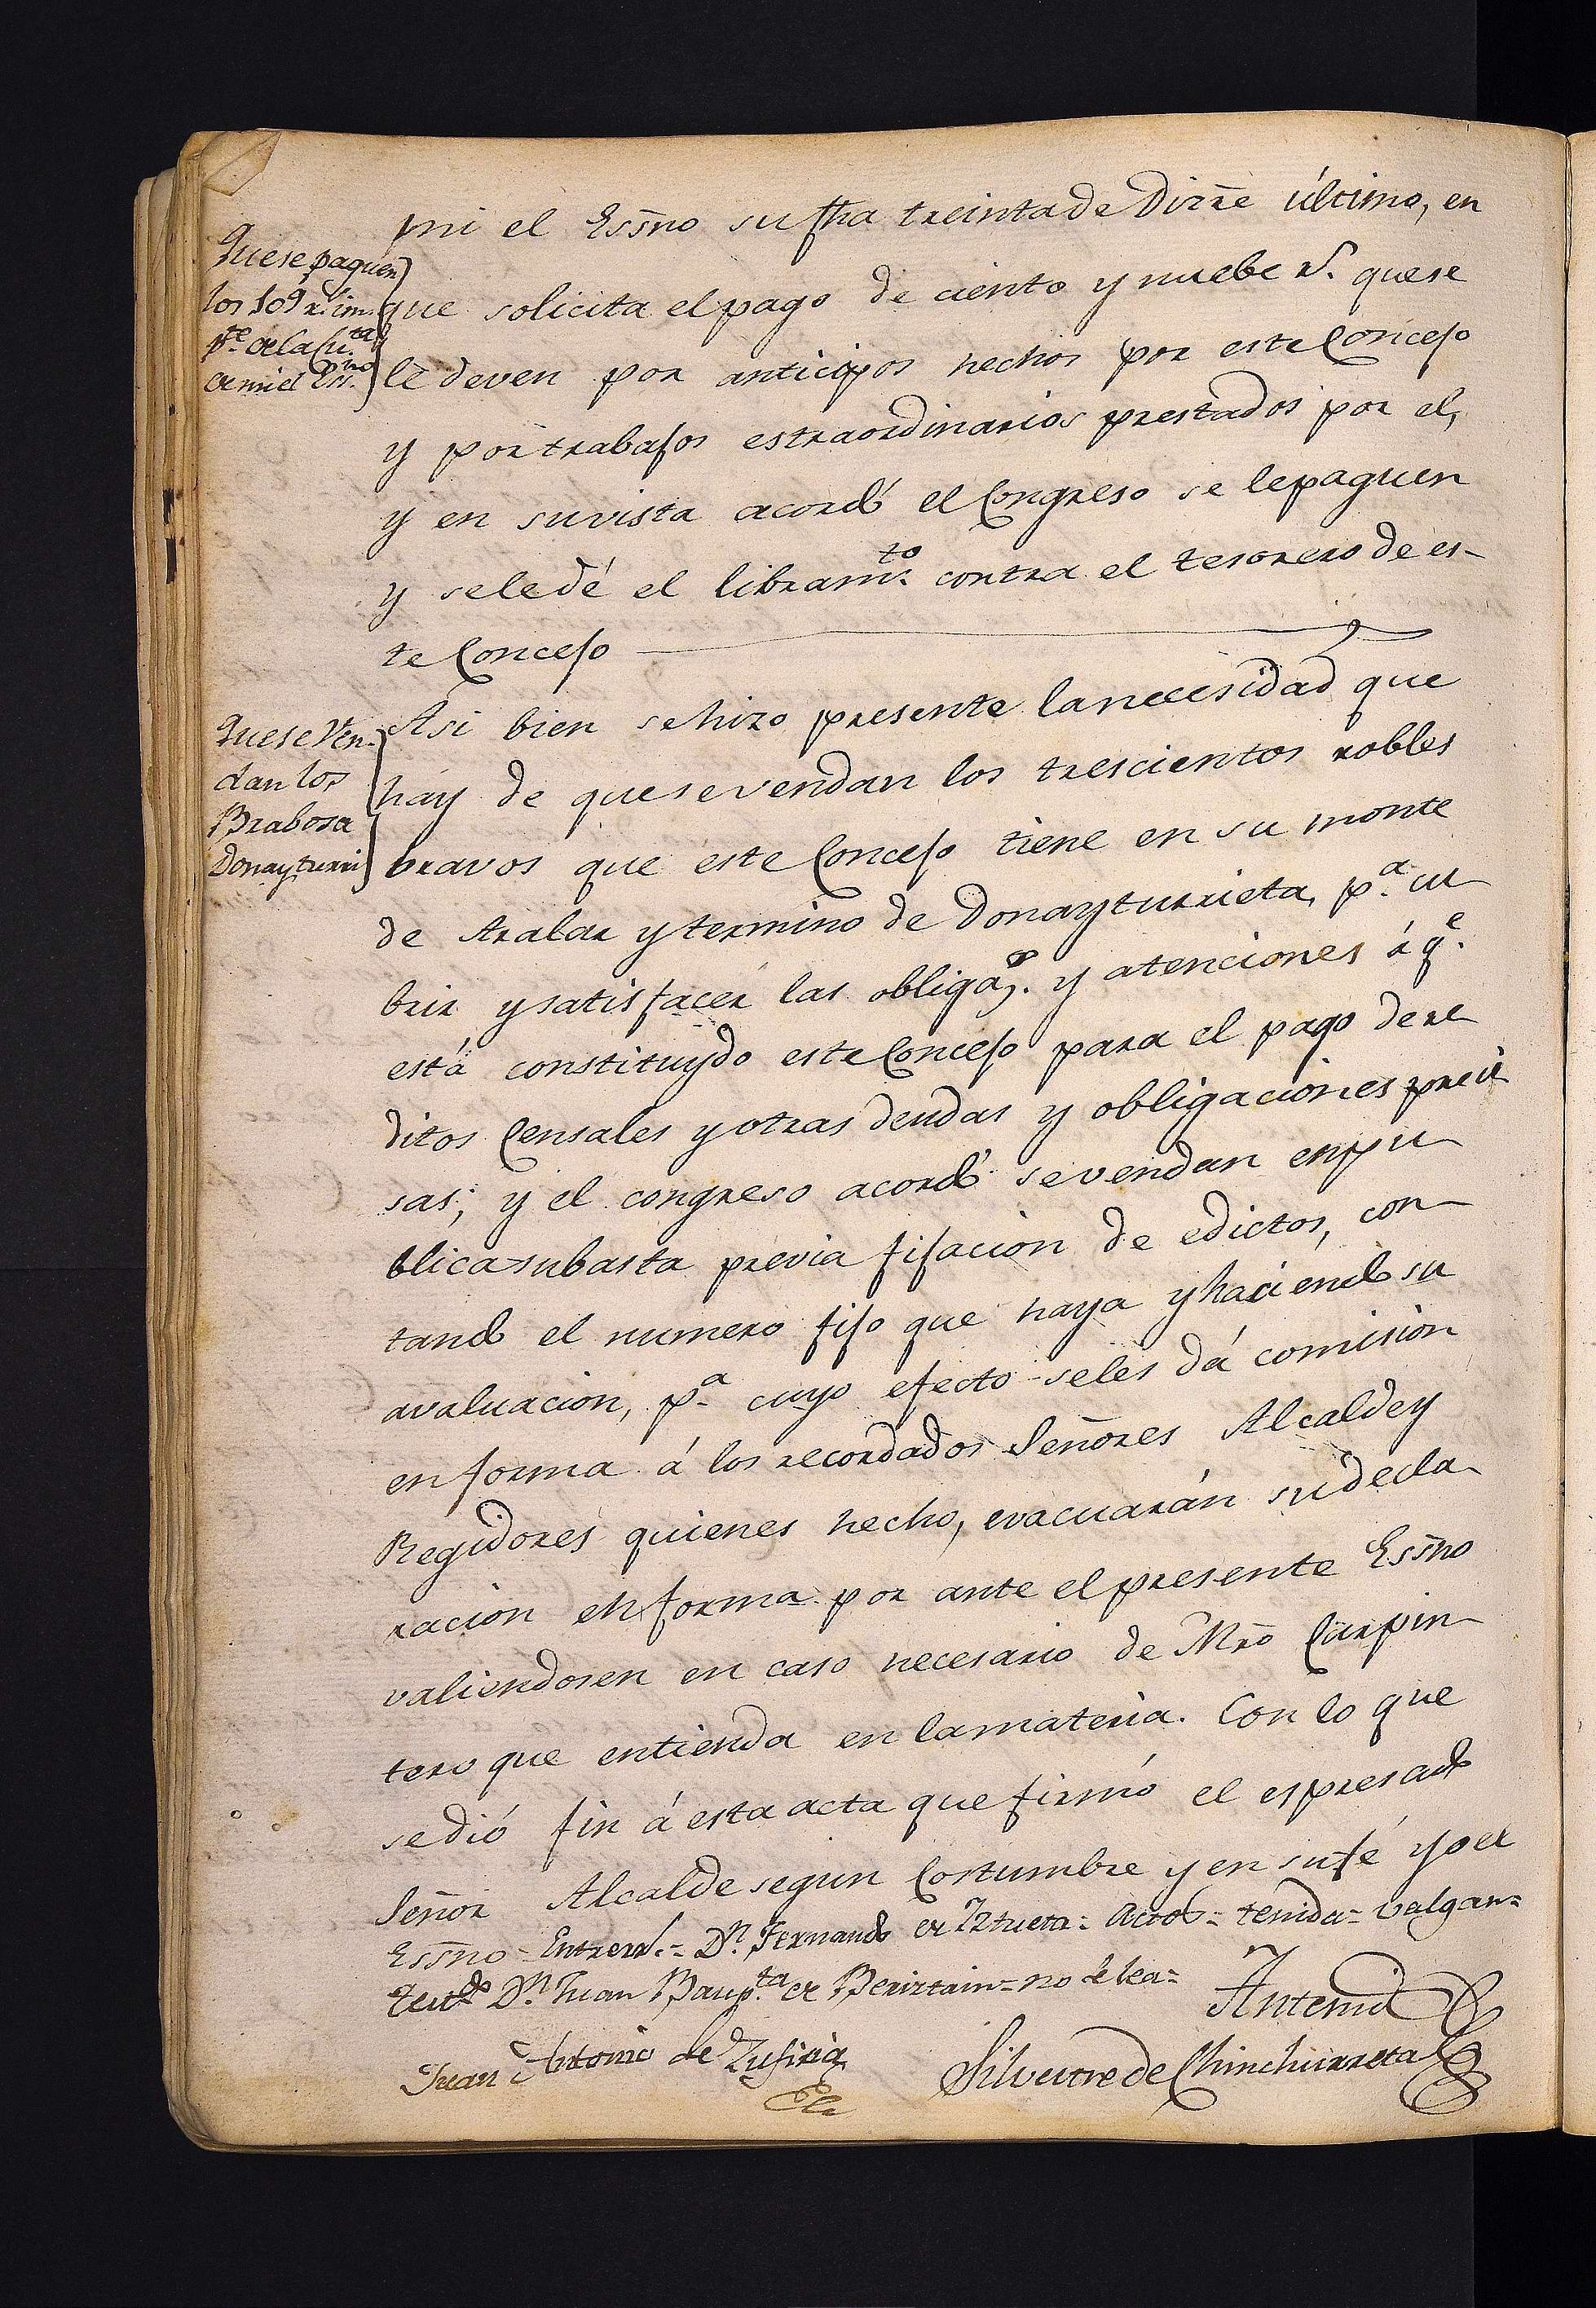 mi el Essno su fha treinta de Dizre último, en
Que se paguen
los 109 rs. im-
pte. de la cu.ta
de mi el Ess.no
que solicita el pago de ciento y nuebe rs. que se
le deven por anticipos hechos por este Concejo
y por trabajos estraordinarios prestados por el,
y en su vista acordó el Congreso se le paguen
y se le dé el libram.to contra el tesorero de es-
te Concejo
Que se Ven-
dan los
Brabos a
Donayturri
Asi bien se hizo presente la necesidad que
hay de que se vendan los trescientos robles
bravos que este Concejo tiene en su monte
de Aralar y termino de Donayturrieta, p.a cu
brir y satisfacer las obligas. y atenciones á q.e
está constituydo este Concejo para el pago de re
ditos Censales y otras deudas y obligaciones preci
sas; y el congreso acordó se vendan en pu
blica subasta previa fijacion de edictos, con
tando el numero fijo que haya y haciendo su
avaluacion, p.a cuyo efecto se les dá comision
en forma á los recordados Señores Alcalde y
Regidores quienes hecho, evacuarán su decla
racion en forma por ante el presente Essno
valiendosen en caso necesario de Mro Carpin
tero que entienda en la materia. Con lo que
se dió fin á esta acta que firmó el espresado
Señor Alcalde segun Costumbre y en su fé yo el
Essno = Entrerr.s = D.n Fernando de Iztueta = Actos = tenida = valgan =
Test.do D.n Juan Baup.ta de Beriztain = no de lea =
Antemi
Juan Antonio de Zufiria
Silvestre de Chinchurreta